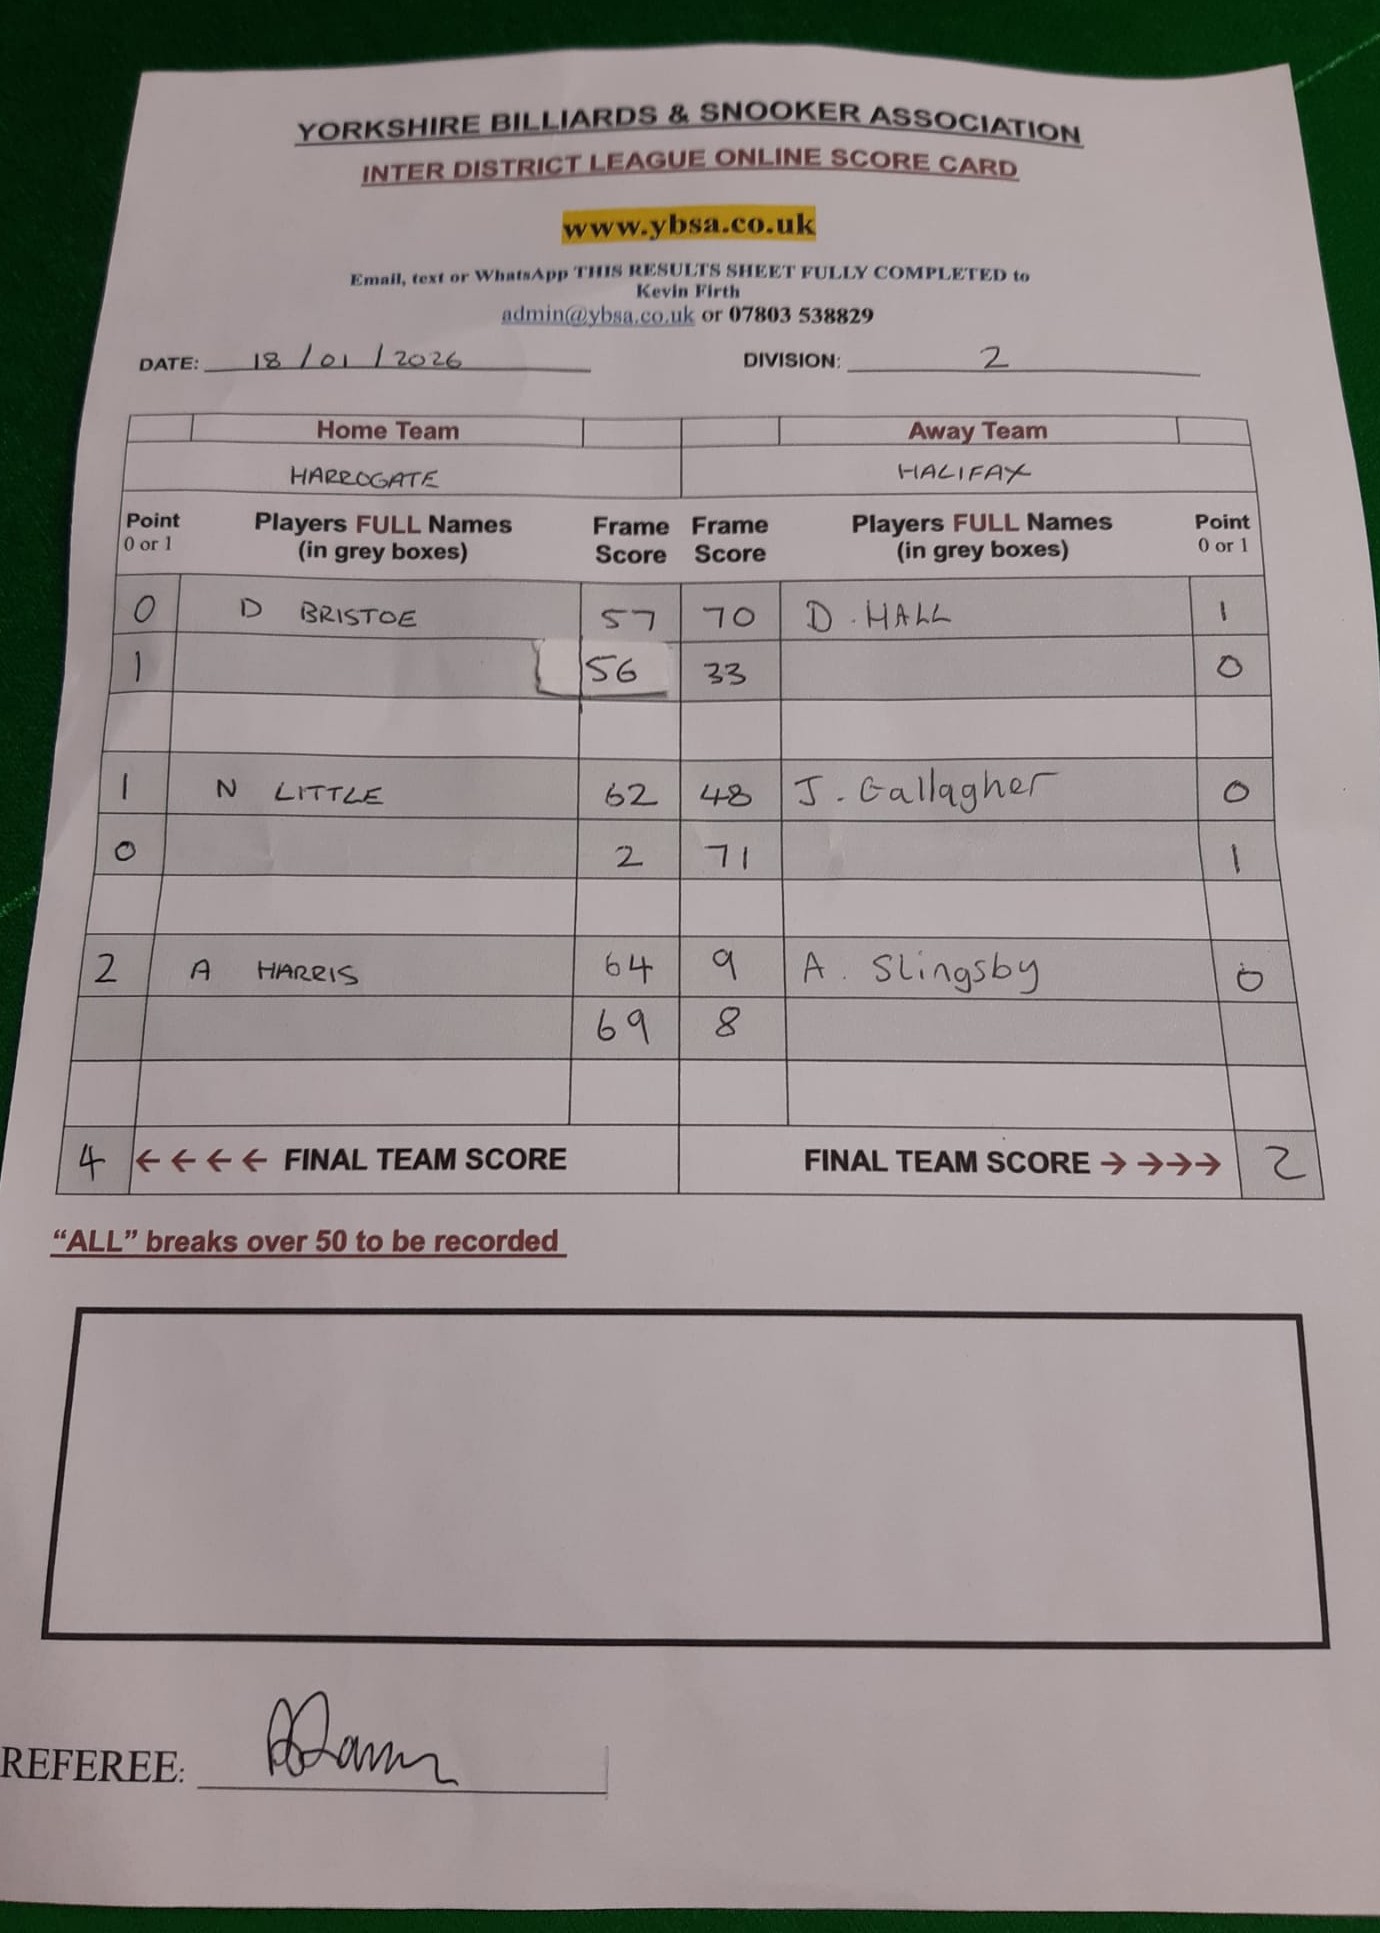 YORKSHIRE BILLIARDS & SNOOKER ASSOCIATION
INTER DISTRICT LEAGUE ONLINE SCORE CARD
www.ybsa.co.uk
Email, text or WhatsApp THIS RESULTS SHEET FULLY COMPLETED to
Kevin Firth
admin@ybsa.co.uk or 07803 538829
DATE: 18/01/2026 DIVISION: 2
Home Team Away Team
HARROGATE HALIFAX
Point Players FULL Names Frame Frame Players FULL Names Point
0 or 1 (in grey boxes) Score Score (in grey boxes) 0 or 1
0 D BRISTOE 57 70 D. HALL 1
1 56 33 0
1 N LITTLE 62 48 J. Gallagher 0
0 2 71 1
2 A HARRIS 64 9 A. Slingsby 0
69 8
4 ←←←← FINAL TEAM SCORE FINAL TEAM SCORE →→→→ 2
“ALL” breaks over 50 to be recorded
REFEREE: